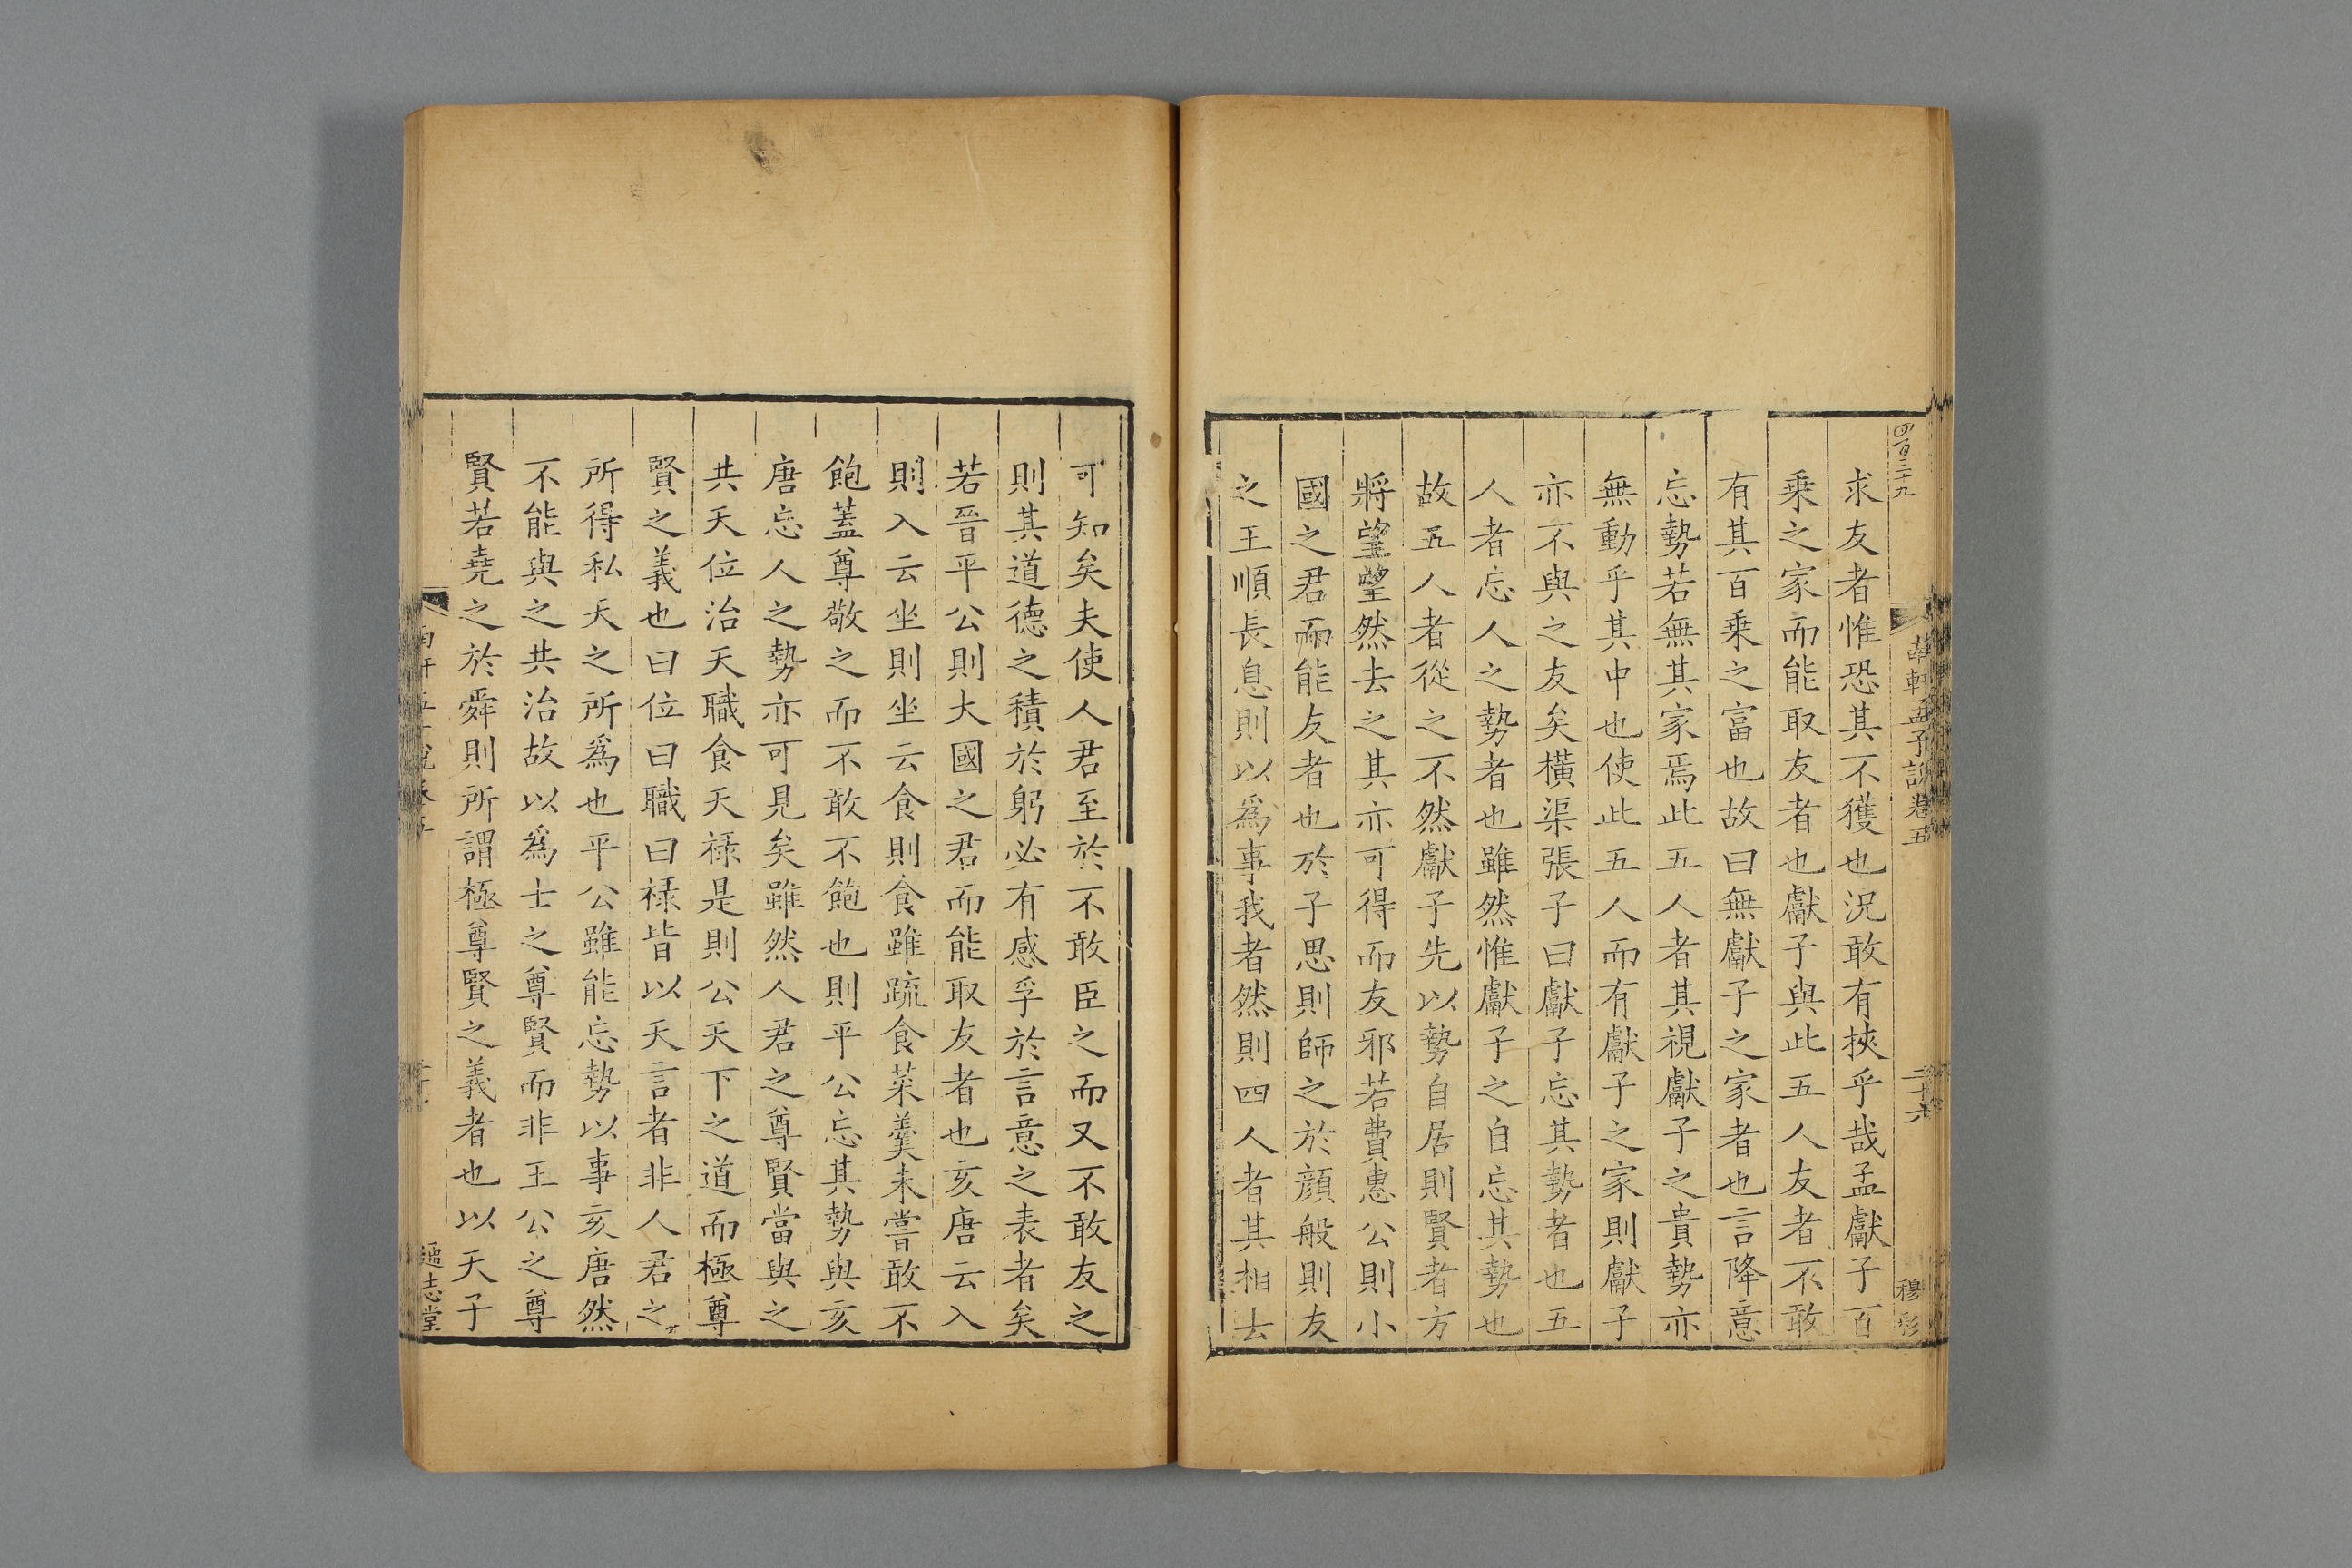 四百三十九
南軒孟子說卷五
二十六
穆彰
求友者惟恐其不獲也況敢有挾乎哉孟獻子百
乗之家而能取友者也獻子與此五人友者不敢
有其百乗之富也故曰無獻子之家者也言降意
忘勢若無其家焉此五人者其視獻子之貴勢亦
無動乎其中也使此五人而有獻子之家則獻子
亦不與之友矣橫渠張子曰獻子忘其勢者也五
人者忘人之勢者也雖然惟獻子之自忘其勢也
故五人者從之不然獻子先以勢自居則賢者方
將望望然去之其亦可得而友邪若費惠公則小
國之君而能友者也於子思則師之於顔般則友
之王順長息則以為事我者然則四人者其相去
可知矣夫使人君至於不敢臣之而又不敢友之
則其道德之積於躬必有感孚於言意之表者矣
若晉平公則大國之君而能取友者也亥唐云入
則入云坐則坐云食則食雖疏食菜羹未嘗敢不
飽蓋尊敬之而不敢不飽也則平公忘其勢與亥
唐忘人之勢亦可見矣雖然人君之尊賢當與之
共天位治天職食天禄是則公天下之道而極尊
賢之義也曰位曰職曰禄皆以天言者非人君之
所得私天之所為也平公雖能忘勢以事亥唐然
不能與之共治故以為士之尊賢而非王公之尊
賢若堯之於舜則所謂極尊賢之義者也以天子
通志堂